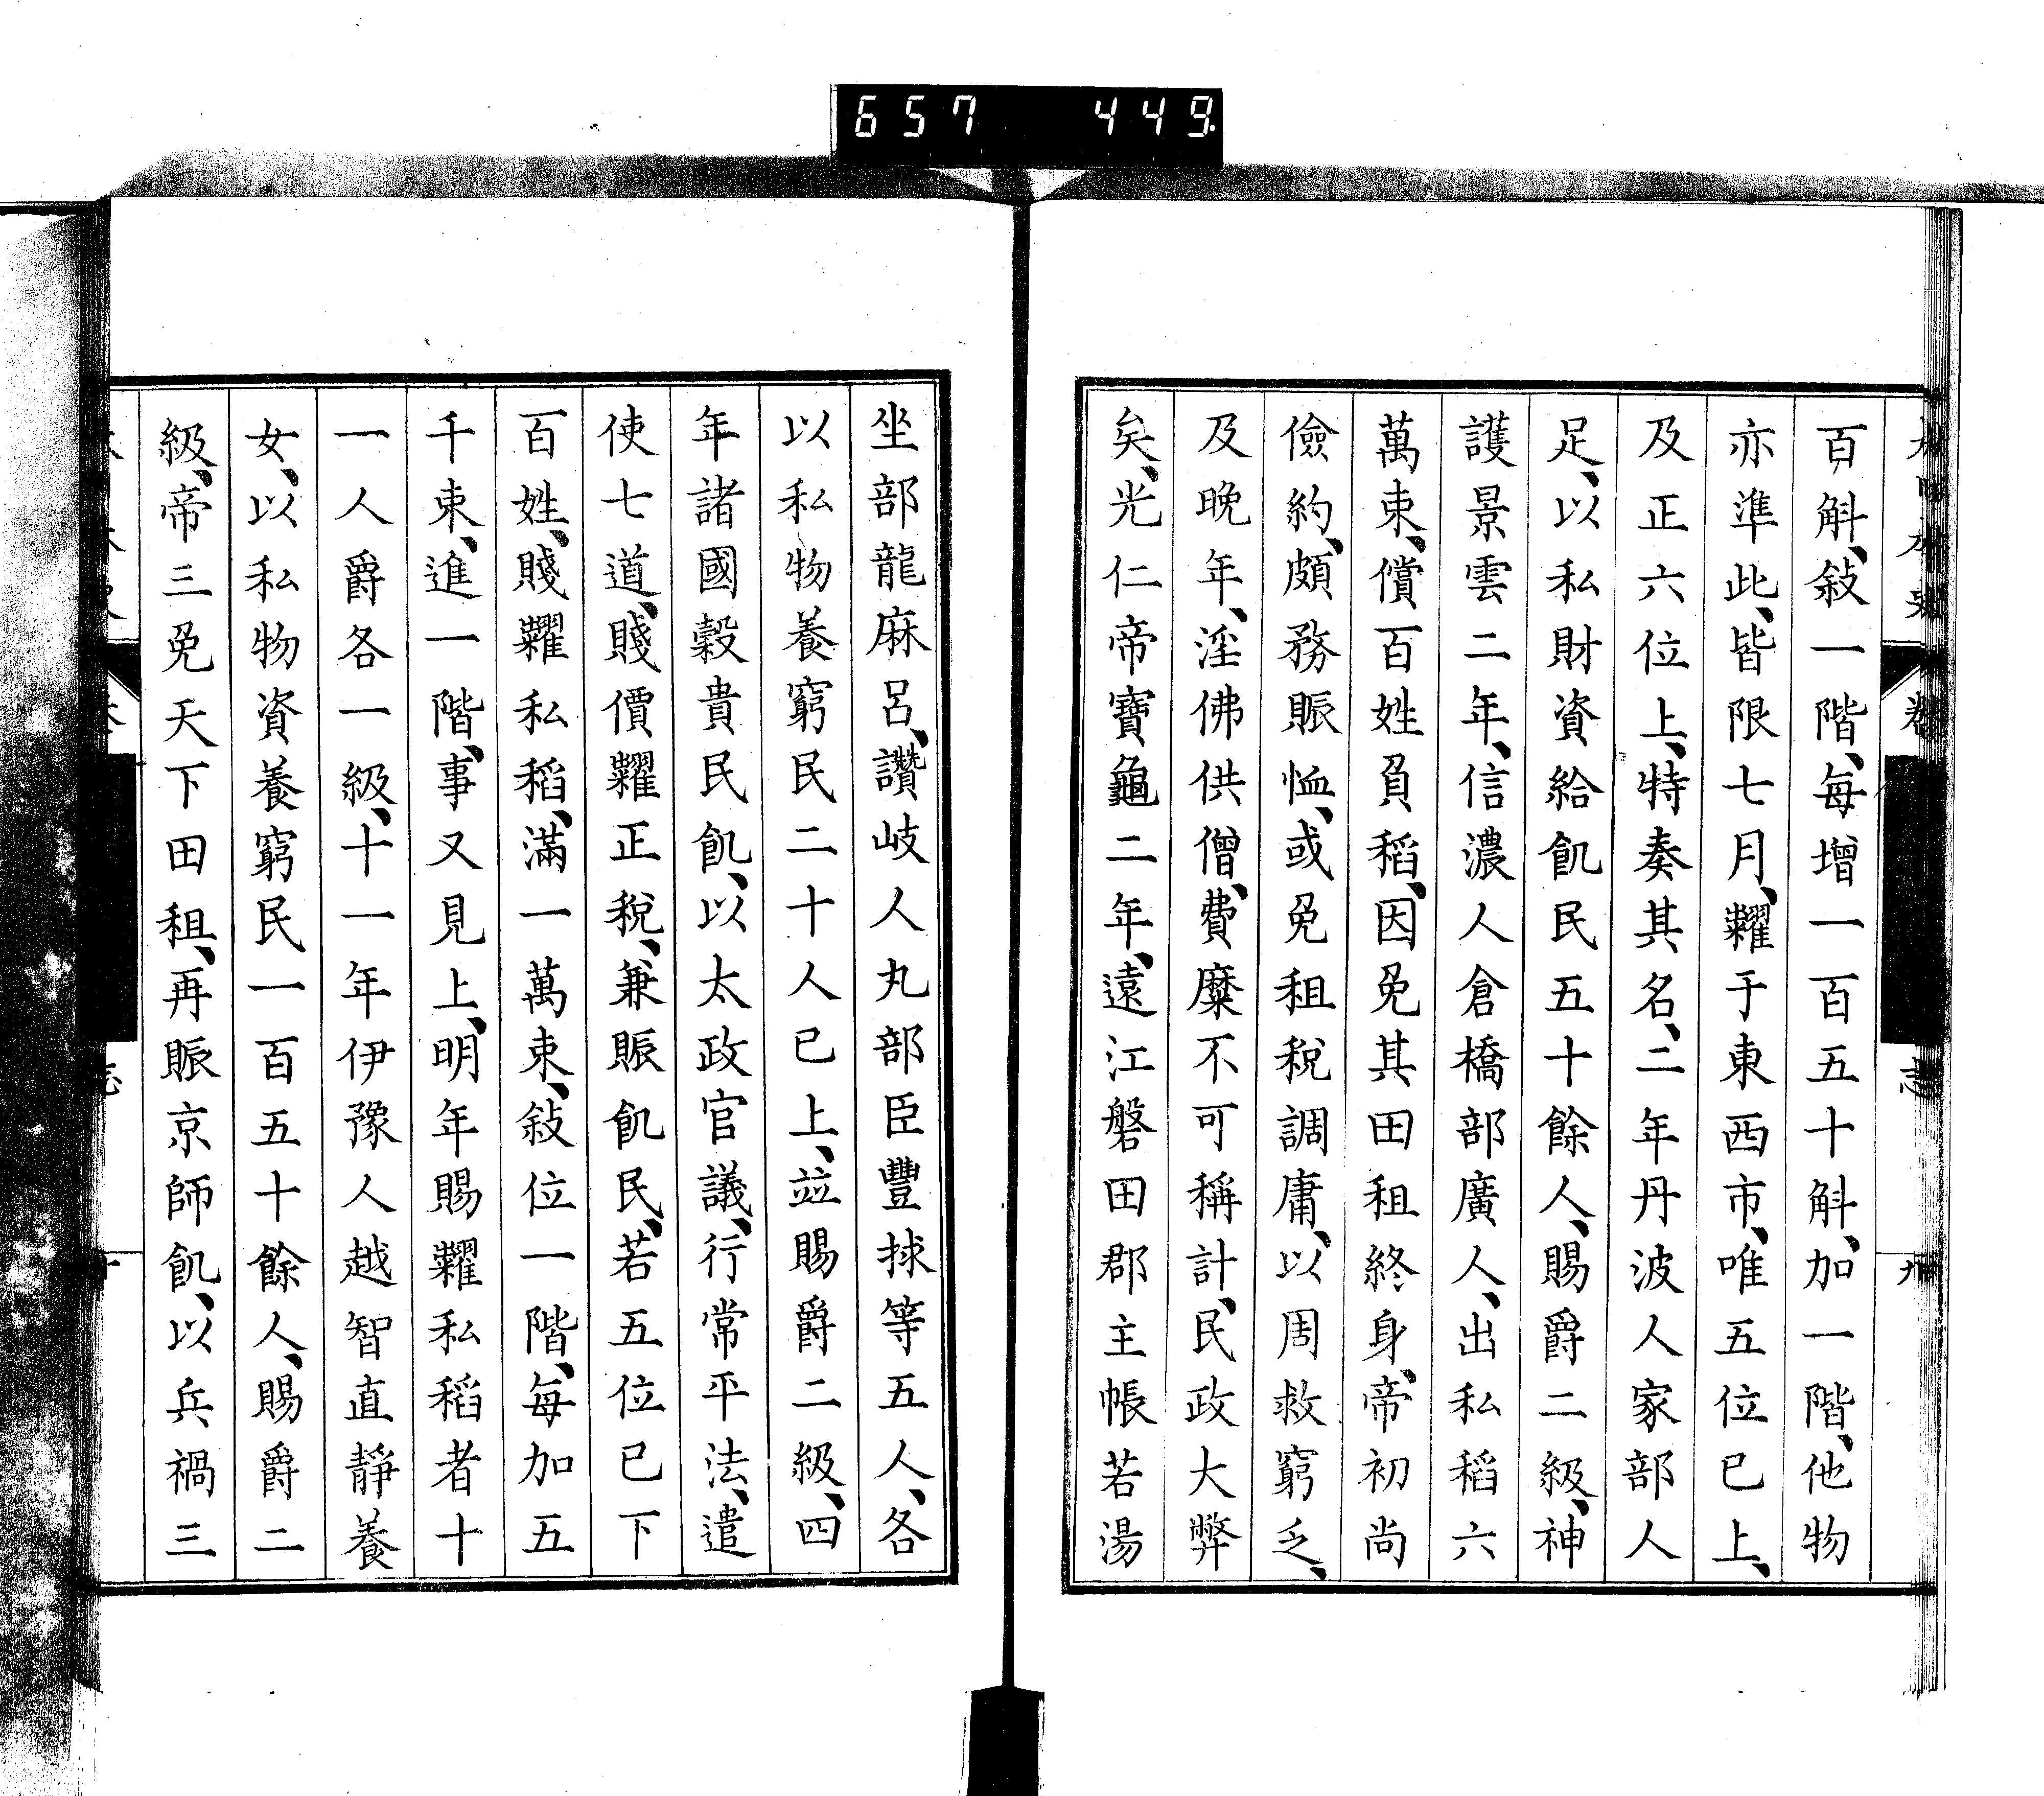 657 449
百斛、敍一階、每增一百五十斛、加一階、他物
亦準此、皆限七月、糶于東西市、唯五位已上、
及正六位上、特奏其名、二年丹波人家部人
足、以私財資給飢民五十餘人、賜爵二級、神
護景雲二年、信濃人倉橋部廣人、出私稻六
萬束、償百姓負稻、因免其田租終身、帝初尚
儉約、頗務賑恤、或免租稅調庸、以周救窮乏、
及晚年、淫佛供僧、費糜不可稱計、民政大弊
矣、光仁帝寶龜二年、遠江磐田郡主帳若湯
坐部龍麻呂、讚岐人丸部臣豐捄等五人、各
以私物養窮民二十人已上、竝賜爵二級、四
年諸國穀貴民飢、以太政官議、行常平法、遣
使七道、賤價糶正稅、兼賑飢民、若五位已下
百姓、賤糶私稻、滿一萬束、敍位一階、每加五
千束、進一階、事又見上、明年賜糶私稻者十
一人爵各一級、十一年伊豫人越智直靜養
女、以私物資養窮民一百五十餘人、賜爵二
級、帝三免天下田租、再賑京師飢、以兵禍三